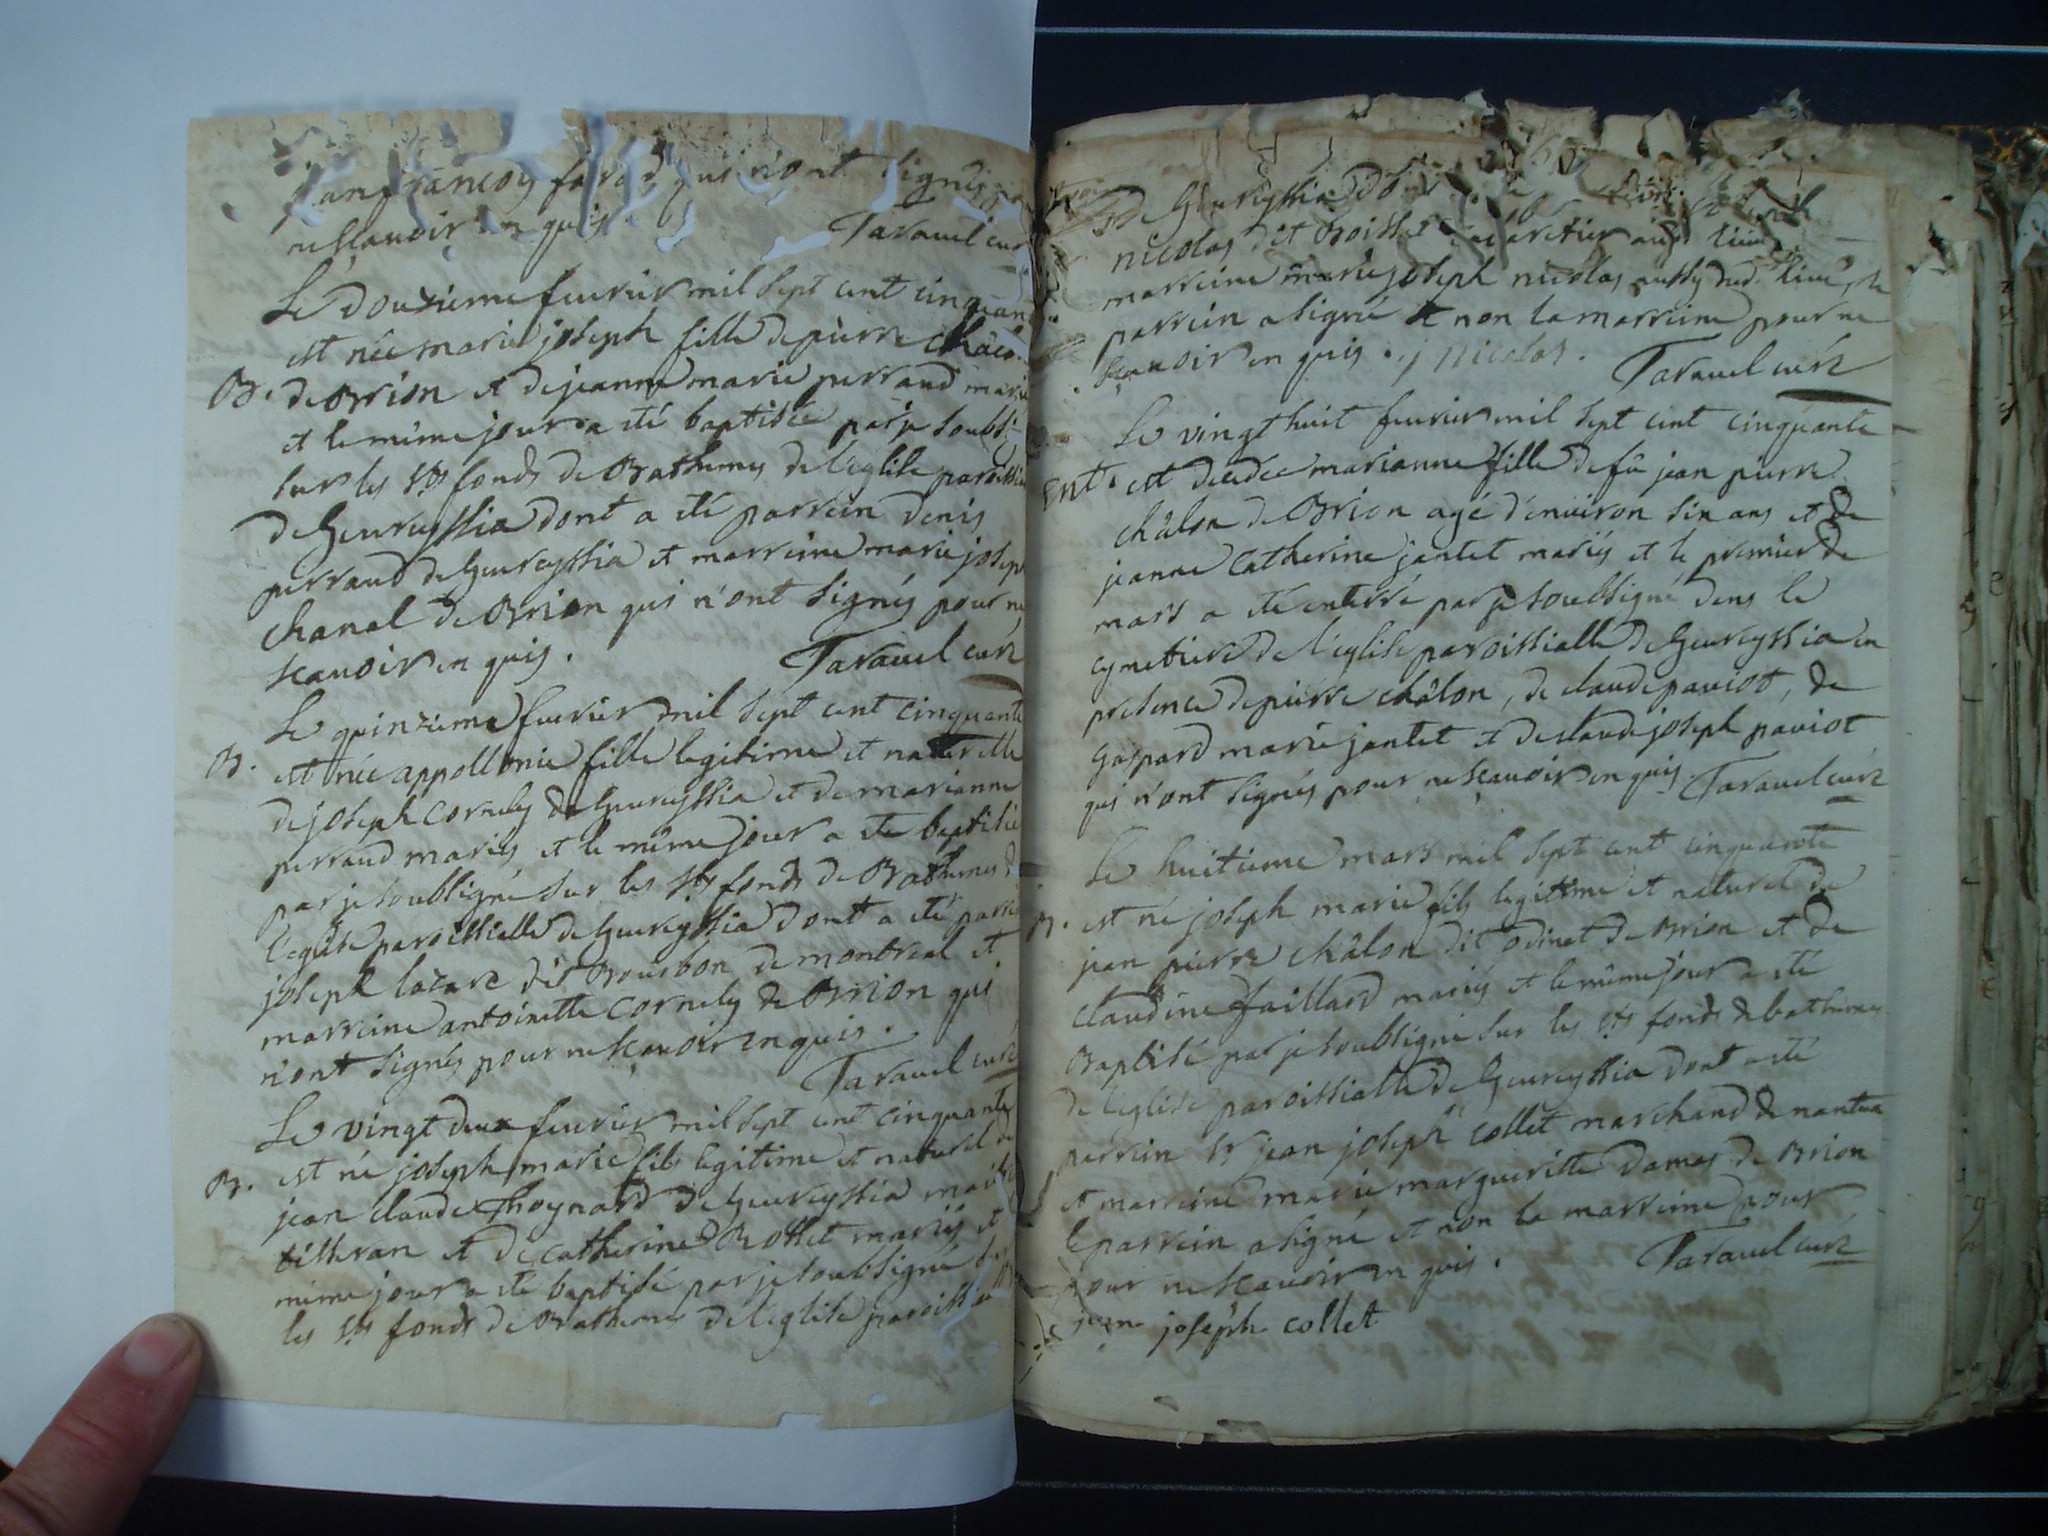 jean francois qui n'ont signés
ne sçauoir en quis Tarauel curé
Le douzieme feurier mil sept cent cinquante
est née marie joseph fille de pierre
B. de Brion et de jeanne marie perraud mariés
et le même jour a été baptisée par je soubsi
sur les sts fonds de Bathemes de l'eglise paroissia
de Geureyssia dont a été parrein denis
perraud de Geureyssia et marreine marie joseph
chanal de Brion qui n'ont signés pour ne
scauoir en quis. Tarauel curé
Le quinzieme feurier mil sept cent cinquante
B. est née appollonie fille legitime et naturelle
de joseph cornely de Geureyssia et de marianne
perraud mariés et le même jour a été baptisée
par je soubsigné sur les sts fonds de Bathemes d
l'eglise paroissialle de Geureyssia dont a été parrein
joseph lazare dit Bourbon de montreal et
marreine antoinette cornely de Brion qui
n'ont signés pour ne sçauoir en quis.
Tarauel curé
Le vingt deux feurier mil sept cent cinquante
B. est né joseph marie fils legitime et naturel de
jean claude Thoynard de Geureyssia maitre
tisseran et de catherine Rosset mariés et
même jour a été baptisé par je soubsigné
les sts fonds de Bathemes de l'eglise paroissia
de Geureyssia
nicolas dit Boissat cabaretier au
marreine marie joseph nicolas aussy dud. lieu, le
parrein a signé et non la marreine pour ne
sçauoir en quis. j nicolas.
Tarauel curé
Le vingt huit feurier mil sept cent cinquante
Ent. est decedée marianne fille de fû jean pierre
châlon de Brion agé d'enuiron six ans et de
jeanne catherine jantet mariés et le premier de
mars a été enterré par je soubsigné dens le
cymetiere de l'eglise paroissialle de Geureyssia en
presence de pierre châlon, de claude pauiot, de
gaspard marie jantet et de claude joseph pauiot
qui n'ont signés pour ne sçauoir en quis. Tarauel curé
Le huitieme mars mil sept cent cinquante
B. est né joseph marie fils legitime et naturel de
jean pierre châlon dit odinet de Brion et de
claudine faillard mariés et le même jour a été
Baptisé par je soubsigné sur les sts fonds de bathemes
de l'eglise paroissialle de Geureyssia dont a été
parrein sr jean joseph collet marchand de nantua
et marreine marie margueritte damas de Brion
le parrein a signé et non la marreine pour
pour ne scauoir en quis. Tarauel curé
jean joseph collet